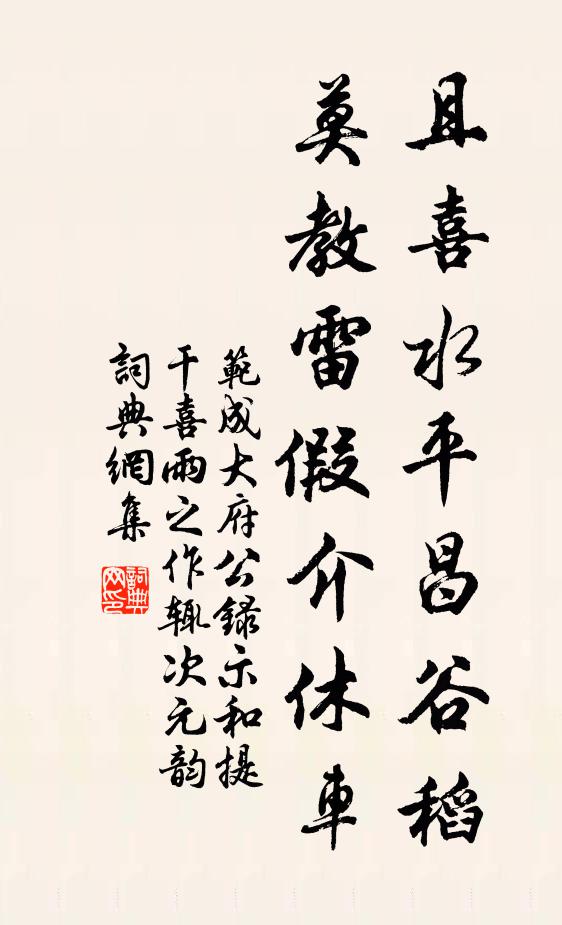 且喜水平昌谷稻
莫教雷假介休車
範成大府公錄示和提
干喜雨之作輒次元韵
詞典網集
詞典
网印